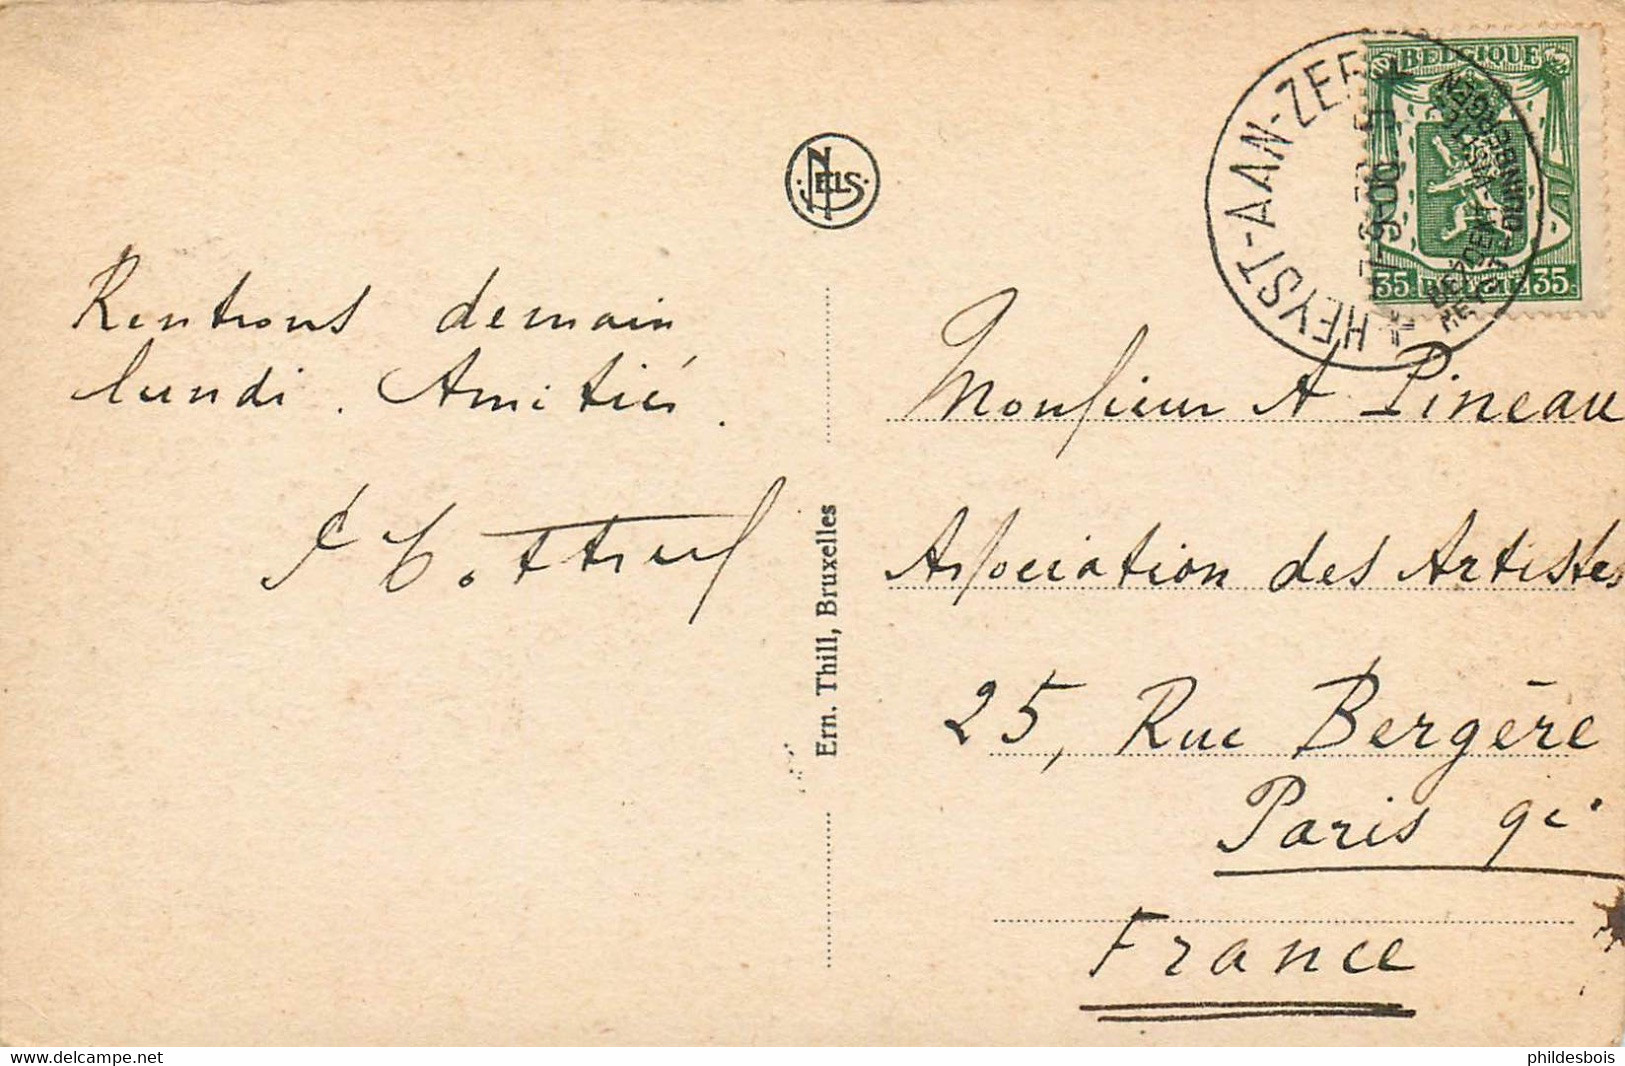 BELGIQUE
HEYST-AAN-ZEE
35 BELGIE 35
NELS
Rentrons demain
lundi. Amitiés.
Ern. Thill, Bruxelles
Monsieur A Pineau
Association des Artistes
25, Rue Bergère
Paris 9e
France
delcampe.net
phildesbois